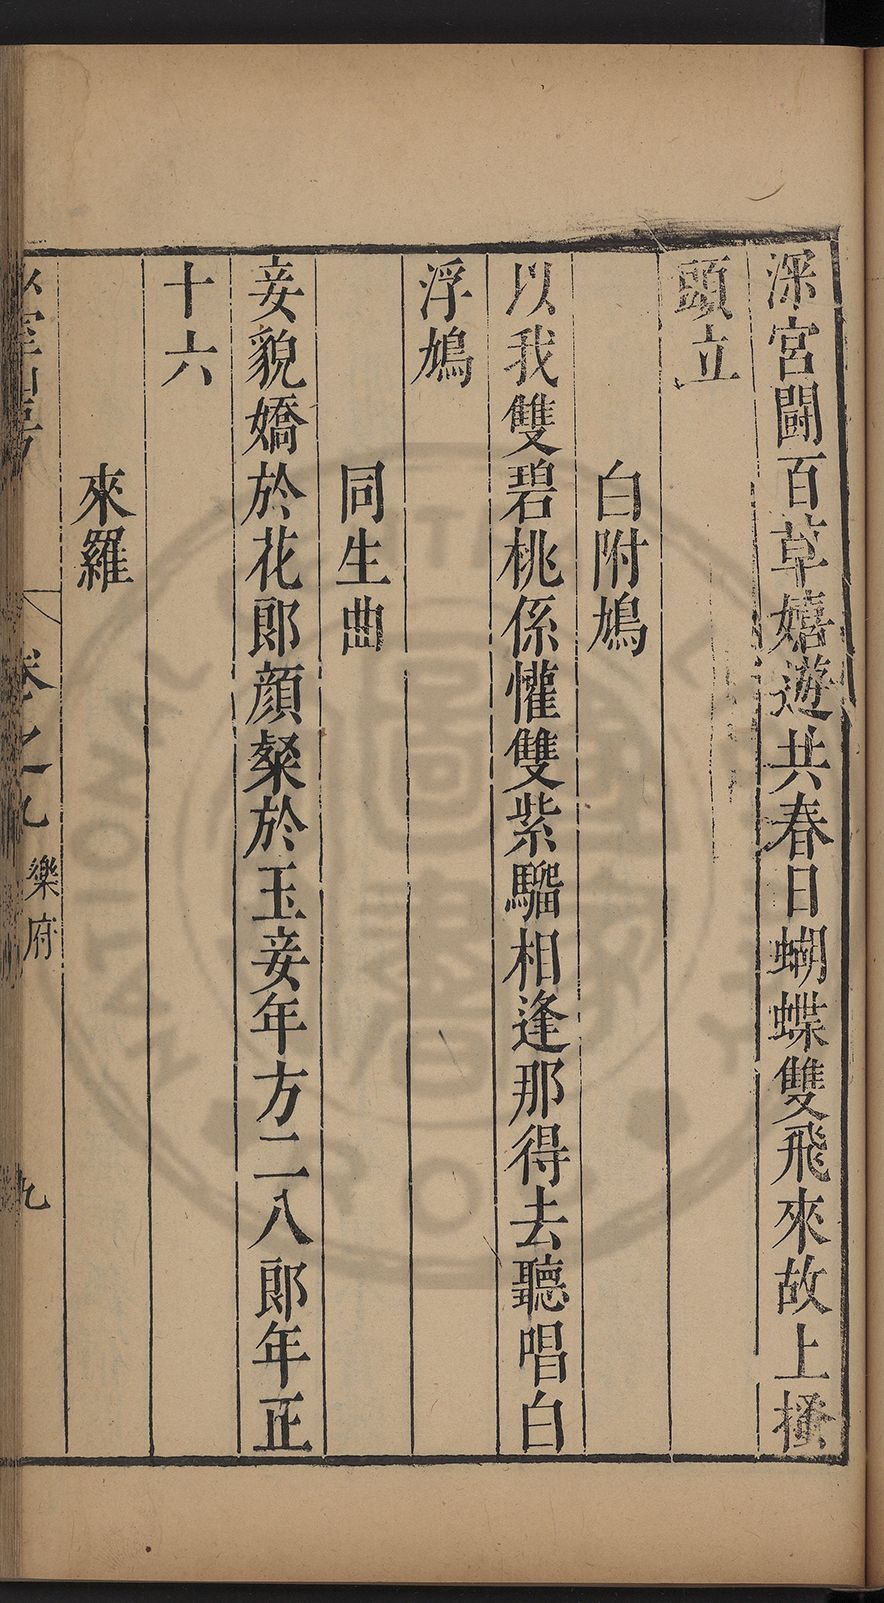 深宮鬪百草嬉遊共春日蝴蝶雙飛來故上搔
頭立
白附鳩
以我雙碧桃係懽雙紫騮相逢那得去聽唱白
浮鳩
同生曲
妾貌嬌於花郎顔粲於玉妾年方二八郎年正
十六
來羅
卷之九 樂府 九